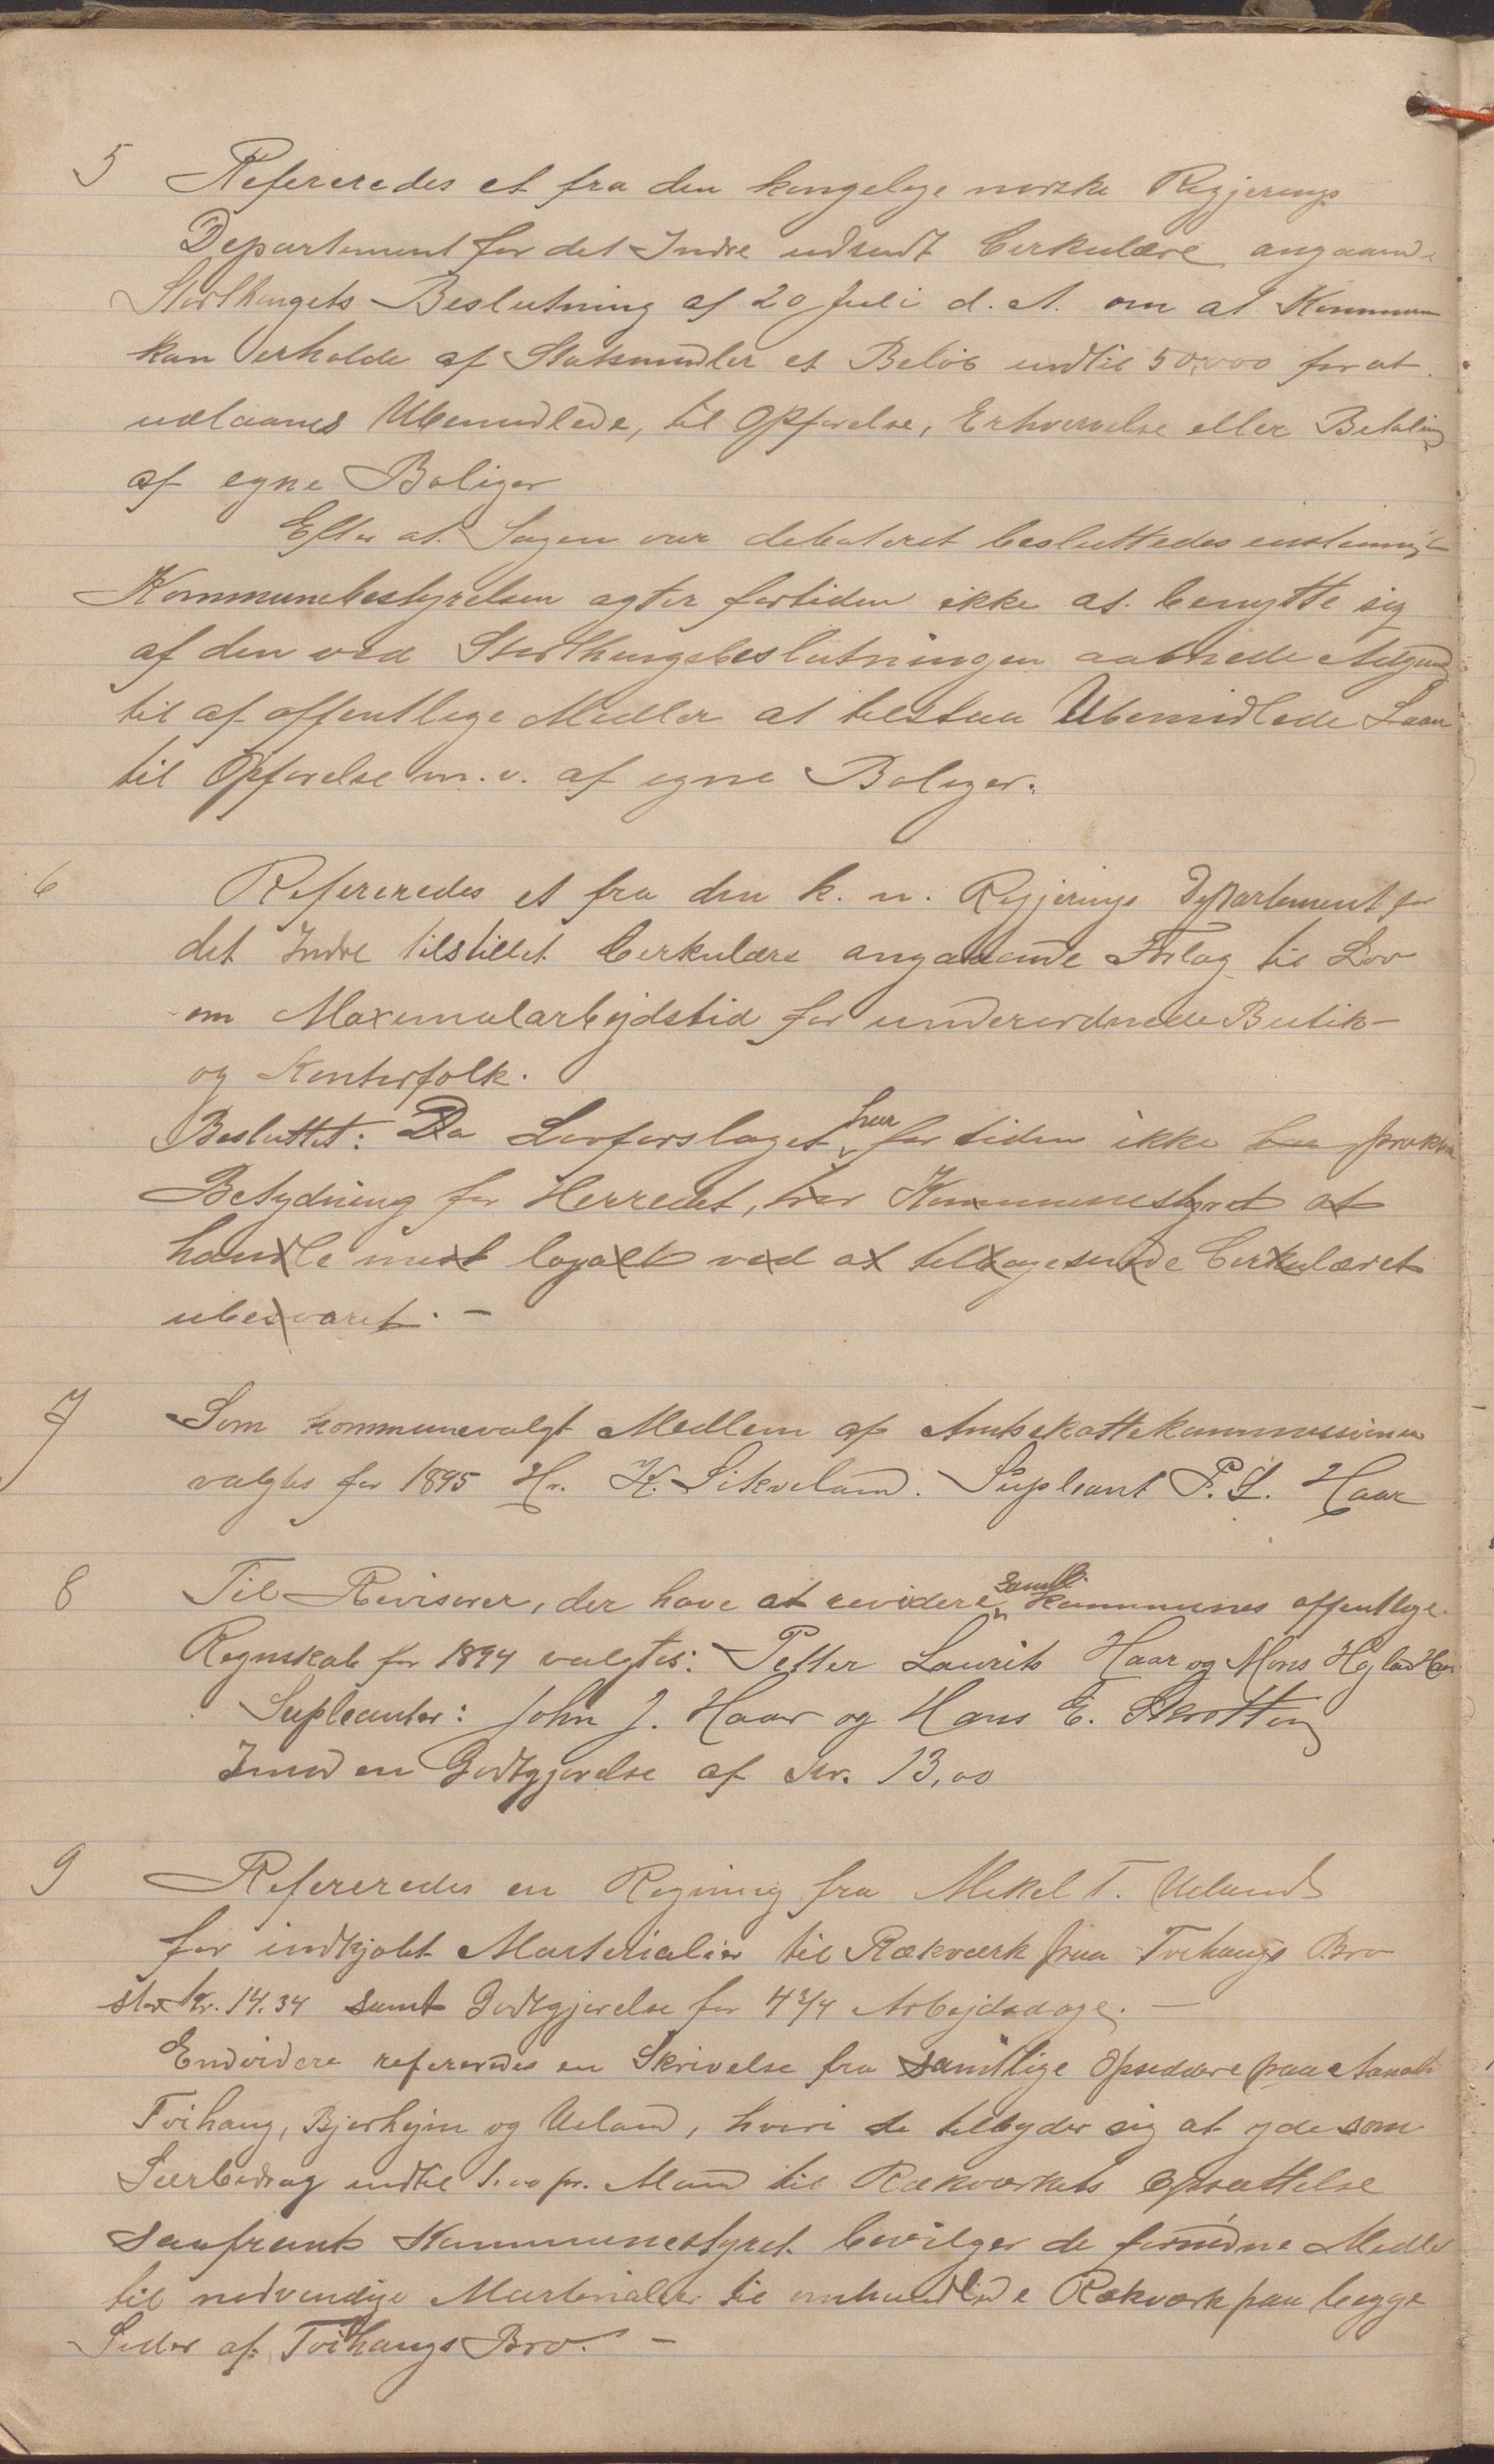 5 Refereredes et fra den kongelige norske Regjerings
Departement for det Indre udsendt Cirkulære angaaende
Storthingets Beslutning af 20 Juli d. A. om at Kommunen
kan erholde af Statsmidler et Beløb indtil 50,000 for at
udlaanes Ubemidlede, til Opførelse, Erhvervelse eller Betaling
af egne Boliger
Efter at Sagen var debateret besluttedes enstemmigt
Kommunebestyrelsen agter fortiden ikke at benytte sig
af den ved Storthingsbeslutningen aabnede Adgang
til af offentlige Midler at tilstaa Ubemidlede Laan
til Opførelse m. v. af egne Boliger.
6 Refereredes et fra den k. n. Regjerings Departement for
det Indre tilstillet Cirkulære angaaende Forslag til Lov
om Maximalarbejdstid for underordnede Butik-
og Kontorfolk.
Besluttet: Da Lovforslaget har for tiden ikke har praktisk
Betydning for Herredet, tror Kommunestyret at
handle mest loyalt ved at tilbagesende Cirkulæret
ubesvaret. –
7 Som kommunevalgt Medlem af Amtsskattekommissionen
valgtes for 1895 Hr. K. Sikveland. Supleant P. L. Haar
8 Til Revisorer, der have at revidere samtl. Kommunes offentlige
Regnskab for 1894 valgtes: Petter Laurits Haar og Mons Højland Haar
Supleanter: John J. Haar og Hans E. Skrotten
Imod en Godtgjørelse af Kr. 13,00
9 Refereredes en Regning fra Mikel T. Ueland
for indkjøbt Materialier til Rækværk paa Tvihaugs Bro
stor Kr. 14.34 samt Godtgjørelse for 4 3/4 Arbejdsdage. –
Endvidere refereredes en Skrivelse fra samtlige Opsiddere paa
Tvihaug, Bjorhejm og Ueland, hvori de tilbyder sig at yde som
Særbidrag indtil 1.00 pr. Mand til Rækværkets Opsættelse
saafremt Kommunestyret bevilger de fornødne Midler
til nødvendige Materialier til omhandlede Rækværk paa begge
Sider af Tvihaugs Bro. –